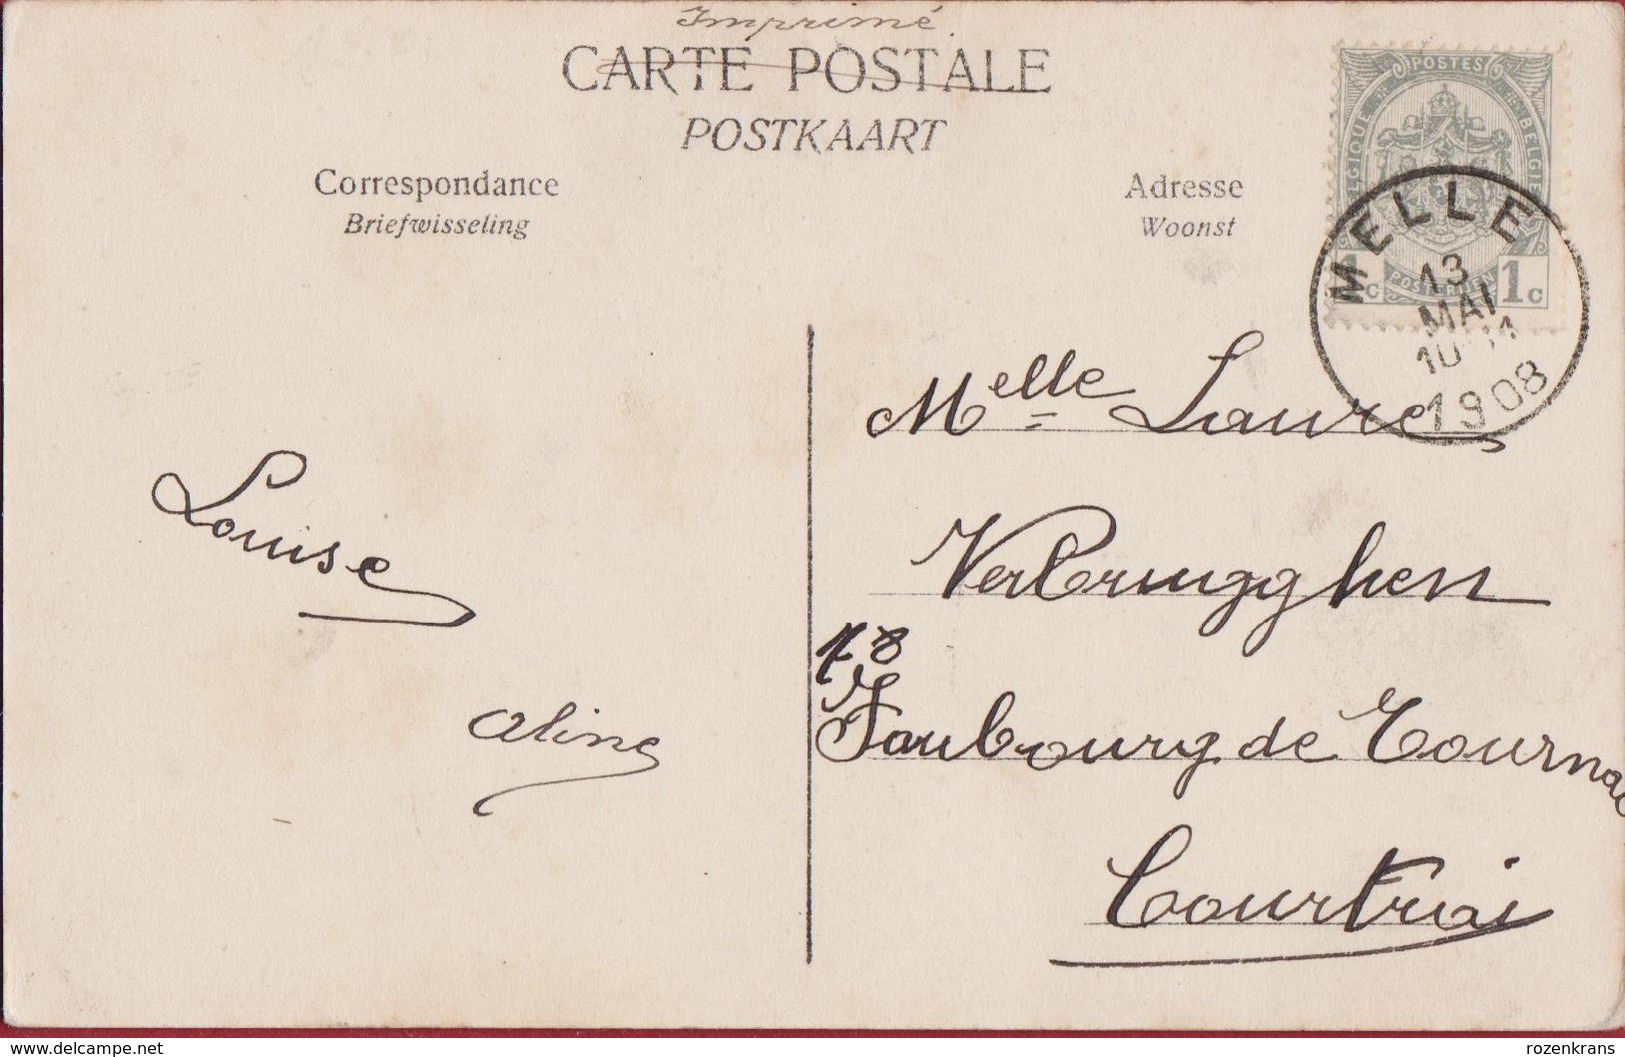 Imprimé
CARTE POSTALE
POSTKAART
Correspondance
Briefwisseling
Adresse
Woonst
POSTES
BELGIQUE BELGIE
POSTERIJEN
1c 1c
MELLE
13
MAI
10-11
1908
Melle Laure
Verbrugghen
78
Faubourg de Tournai
Courtrai
Louise
Aline
delcampe.net
rozenkrans